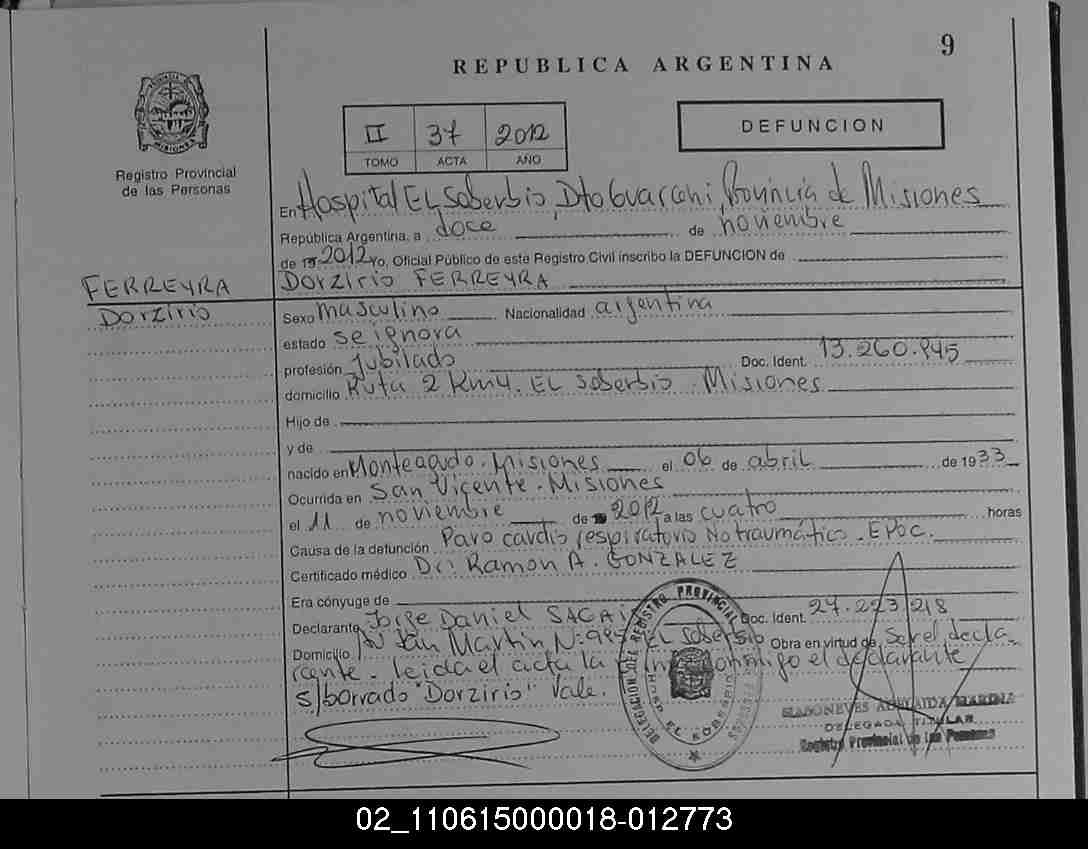 9
REPUBLICA ARGENTINA
Registro Provincial
de las Personas
II 37 2012
TOMO ACTA AÑO
DEFUNCION
En Hospital EL Soberbio, Dto Guarani, Provincia de Misiones
República Argentina, a doce de noviembre
de 19 2012 Yo, Oficial Público de este Registro Civil inscribo la DEFUNCION de
FERREYRA
Dorzirio FERREYRA
Dorzirio
Sexo masculino Nacionalidad argentina
estado se ignora
profesión Jubilado Doc. Ident. 13.260.945
domicilio Ruta 2 Km 4. EL Soberbio. Misiones
Hijo de
y de
nacido en Monteagudo. Misiones el 06 de abril de 1933
Ocurrida en San Vicente. Misiones
el 11 de noviembre de 2012 a las cuatro horas
Causa de la defunción Paro cardio respiratorio No traumático. EPOC.
Certificado médico Dr: Ramon A. GONZALEZ
Era cónyuge de
Declarante Jorge Daniel Doc. Ident. 27.223.218
Domicilio Av San Martin EL Soberbio Obra en virtud de Ser el decla-
rante. leida el acta la conmigo el declarante
s/borrado "Dorzirio" Vale.
DELEGACION DEL REGISTRO PROVINCIAL
EL SOBERBIO
DELEGADA TITULAR
Registro Provincial de las Personas
02_110615000018-012773